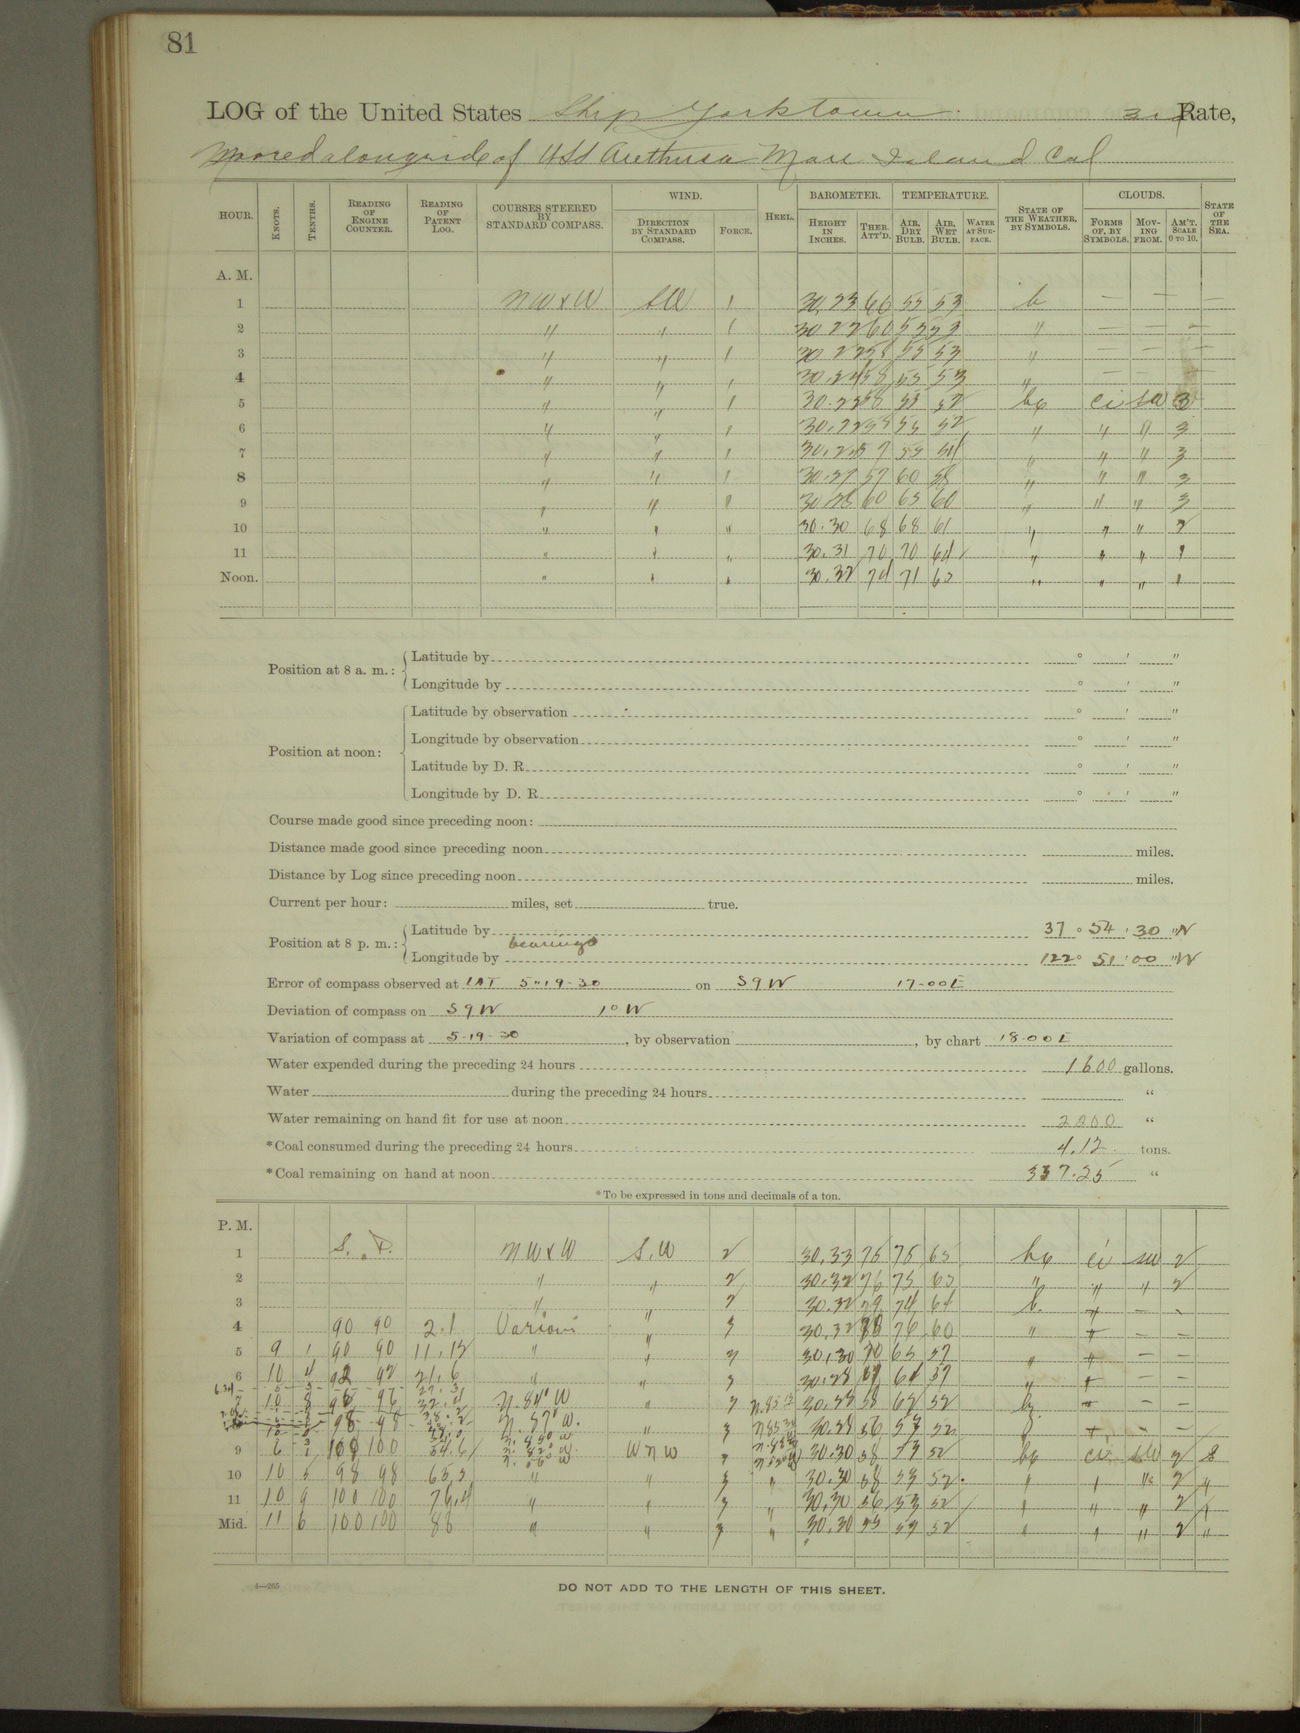 81
LOG of the United States Ship Yorktown 3rd Rate,
Moored alongside of USS Arethusa Mare Island Cal
HOUR. KNOTS. TENTHS. READING OF ENGINE COUNTER. READING OF PATENT LOG. COURSES STEERED BY STANDARD COMPASS. WIND. DIRECTION BY STANDARD COMPASS. FORCE. HEEL. BAROMETER. HEIGHT IN INCHES. THER. ATT'D. TEMPERATURE. AIR, DRY BULB. AIR, WET BULB. WATER AT SURFACE. STATE OF THE WEATHER, BY SYMBOLS. CLOUDS. FORMS OF, BY SYMBOLS. MOVING FROM. AM'T. SCALE 0 TO 10. STATE OF THE SEA.
A. M.
1 NW x W SW 1 30.23 60 55 53 b — — —
2 " " 1 30 22 60 53 53 " — — —
3 " " 1 30 22 58 55 53 " — — —
4 " " 1 30.24 58 55 53 " — — —
5 " " 1 30.22 58 53 52 bc ci SW 3
6 " " 1 30.22 55 53 52 " " " 3
7 " " 1 57 55 54 " " " 3
8 " " 1 30.27 57 60 58 " " " 3
9 " " " 30.28 60 65 60 " " " 3
10 " " " 30.30 68 68 61 " " " 2
11 " " " 30.31 70 70 64 " " " 1
Noon. " " " 30.32 74 71 62 " " " 1
Position at 8 a. m.: Latitude by ° ' "
Longitude by ° ' "
Position at noon: Latitude by observation ° ' "
Longitude by observation ° ' "
Latitude by D. R. ° ' "
Longitude by D. R. ° ' "
Course made good since preceding noon:
Distance made good since preceding noon miles.
Distance by Log since preceding noon miles.
Current per hour: miles, set true.
Position at 8 p. m.: Latitude by bearings 37 ° 54 ' 30 " N
Longitude by 122 ° 51 ' 00 " W
Error of compass observed at LAT 5-19-30 on S 9 W 17-00 E
Deviation of compass on S 9 W 1° W
Variation of compass at 5-19-30, by observation , by chart 18-00 E
Water expended during the preceding 24 hours 1600 gallons.
Water during the preceding 24 hours "
Water remaining on hand fit for use at noon 2000 "
*Coal consumed during the preceding 24 hours 4.12 tons.
*Coal remaining on hand at noon 337.25 "
*To be expressed in tons and decimals of a ton.
P. M. S. P.
1 NW x W S.W 2 30.33 75 75 65 bc ci SW 2
2 " " 2 30.32 76 75 63 " " " 2
3 " " 2 30.32 79 74 64 b. + - -
4 90 90 2.1 Various " 3 30.32 76 60 " + — —
5 9 1 90 90 11.12 " " 3 30.30 70 65 57 " + — —
6 10 4 92 92 21.6 " " 3 30.28 64 59 " + — —
7 10 8 96 96 N. 84° W " 3 30.28 58 62 52 + — —
98 98 N. 57° W. " 3 30.28 56 53 52 + — —
9 6 1 100 100 54.6 WNW 30.30 58 53 52 bc ci SW 2 S
10 10 5 98 98 65.5 " " 3 " 30.30 58 53 52 " " " 2 "
11 10 9 100 100 76.4 " " 3 " 30.30 56 53 52 " " " 2 "
Mid. 11 6 100 100 88 " " 3 " 30.30 55 53 52 " " " 2 "
4—265
DO NOT ADD TO THE LENGTH OF THIS SHEET.